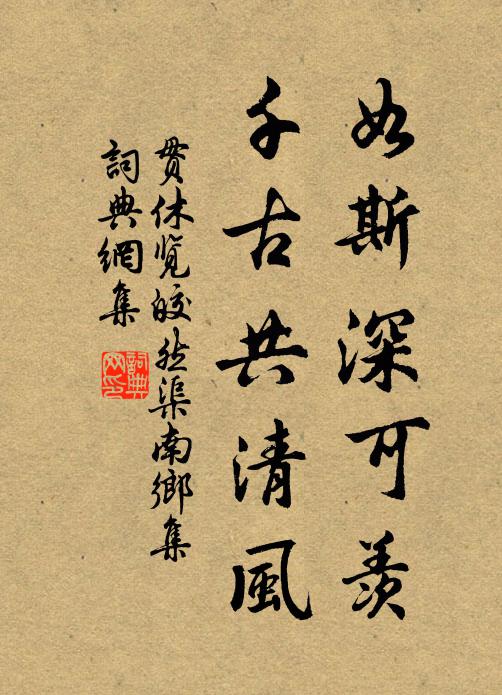 如斯深可羨
千古共清風
貫休覽皎然渠南鄉集
詞典網集
詞典网印